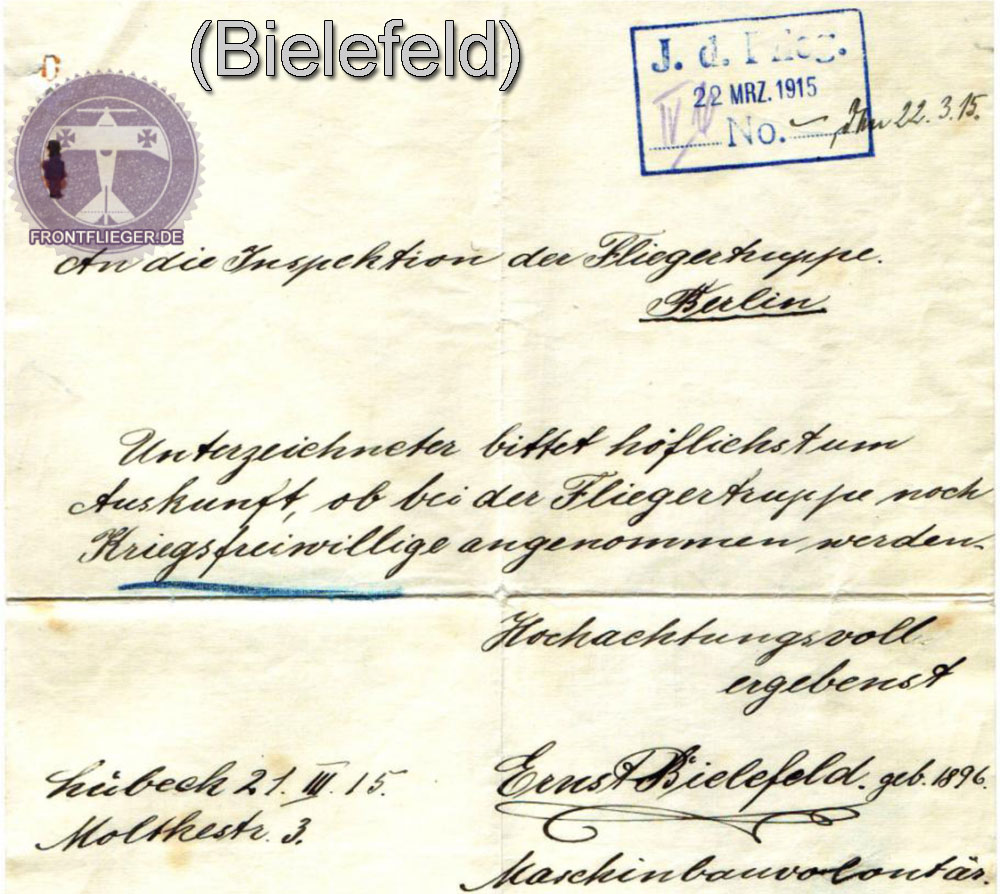 (Bielefeld)
J. d. Flieg.
22 MRZ. 1915
No.
22. 3. 15.
FRONTFLIEGER.DE
An die Inspektion der Fliegertruppe.
Berlin
Unterzeichneter bittet höflichst um
Auskunft, ob bei der Fliegertruppe noch
Kriegsfreiwillige angenommen werden.
Hochachtungsvoll
ergebenst
Lübeck 21. III. 15.
Ernst Bielefeld. geb. 1896.
Moltkestr. 3.
Maschinbauvolontär.